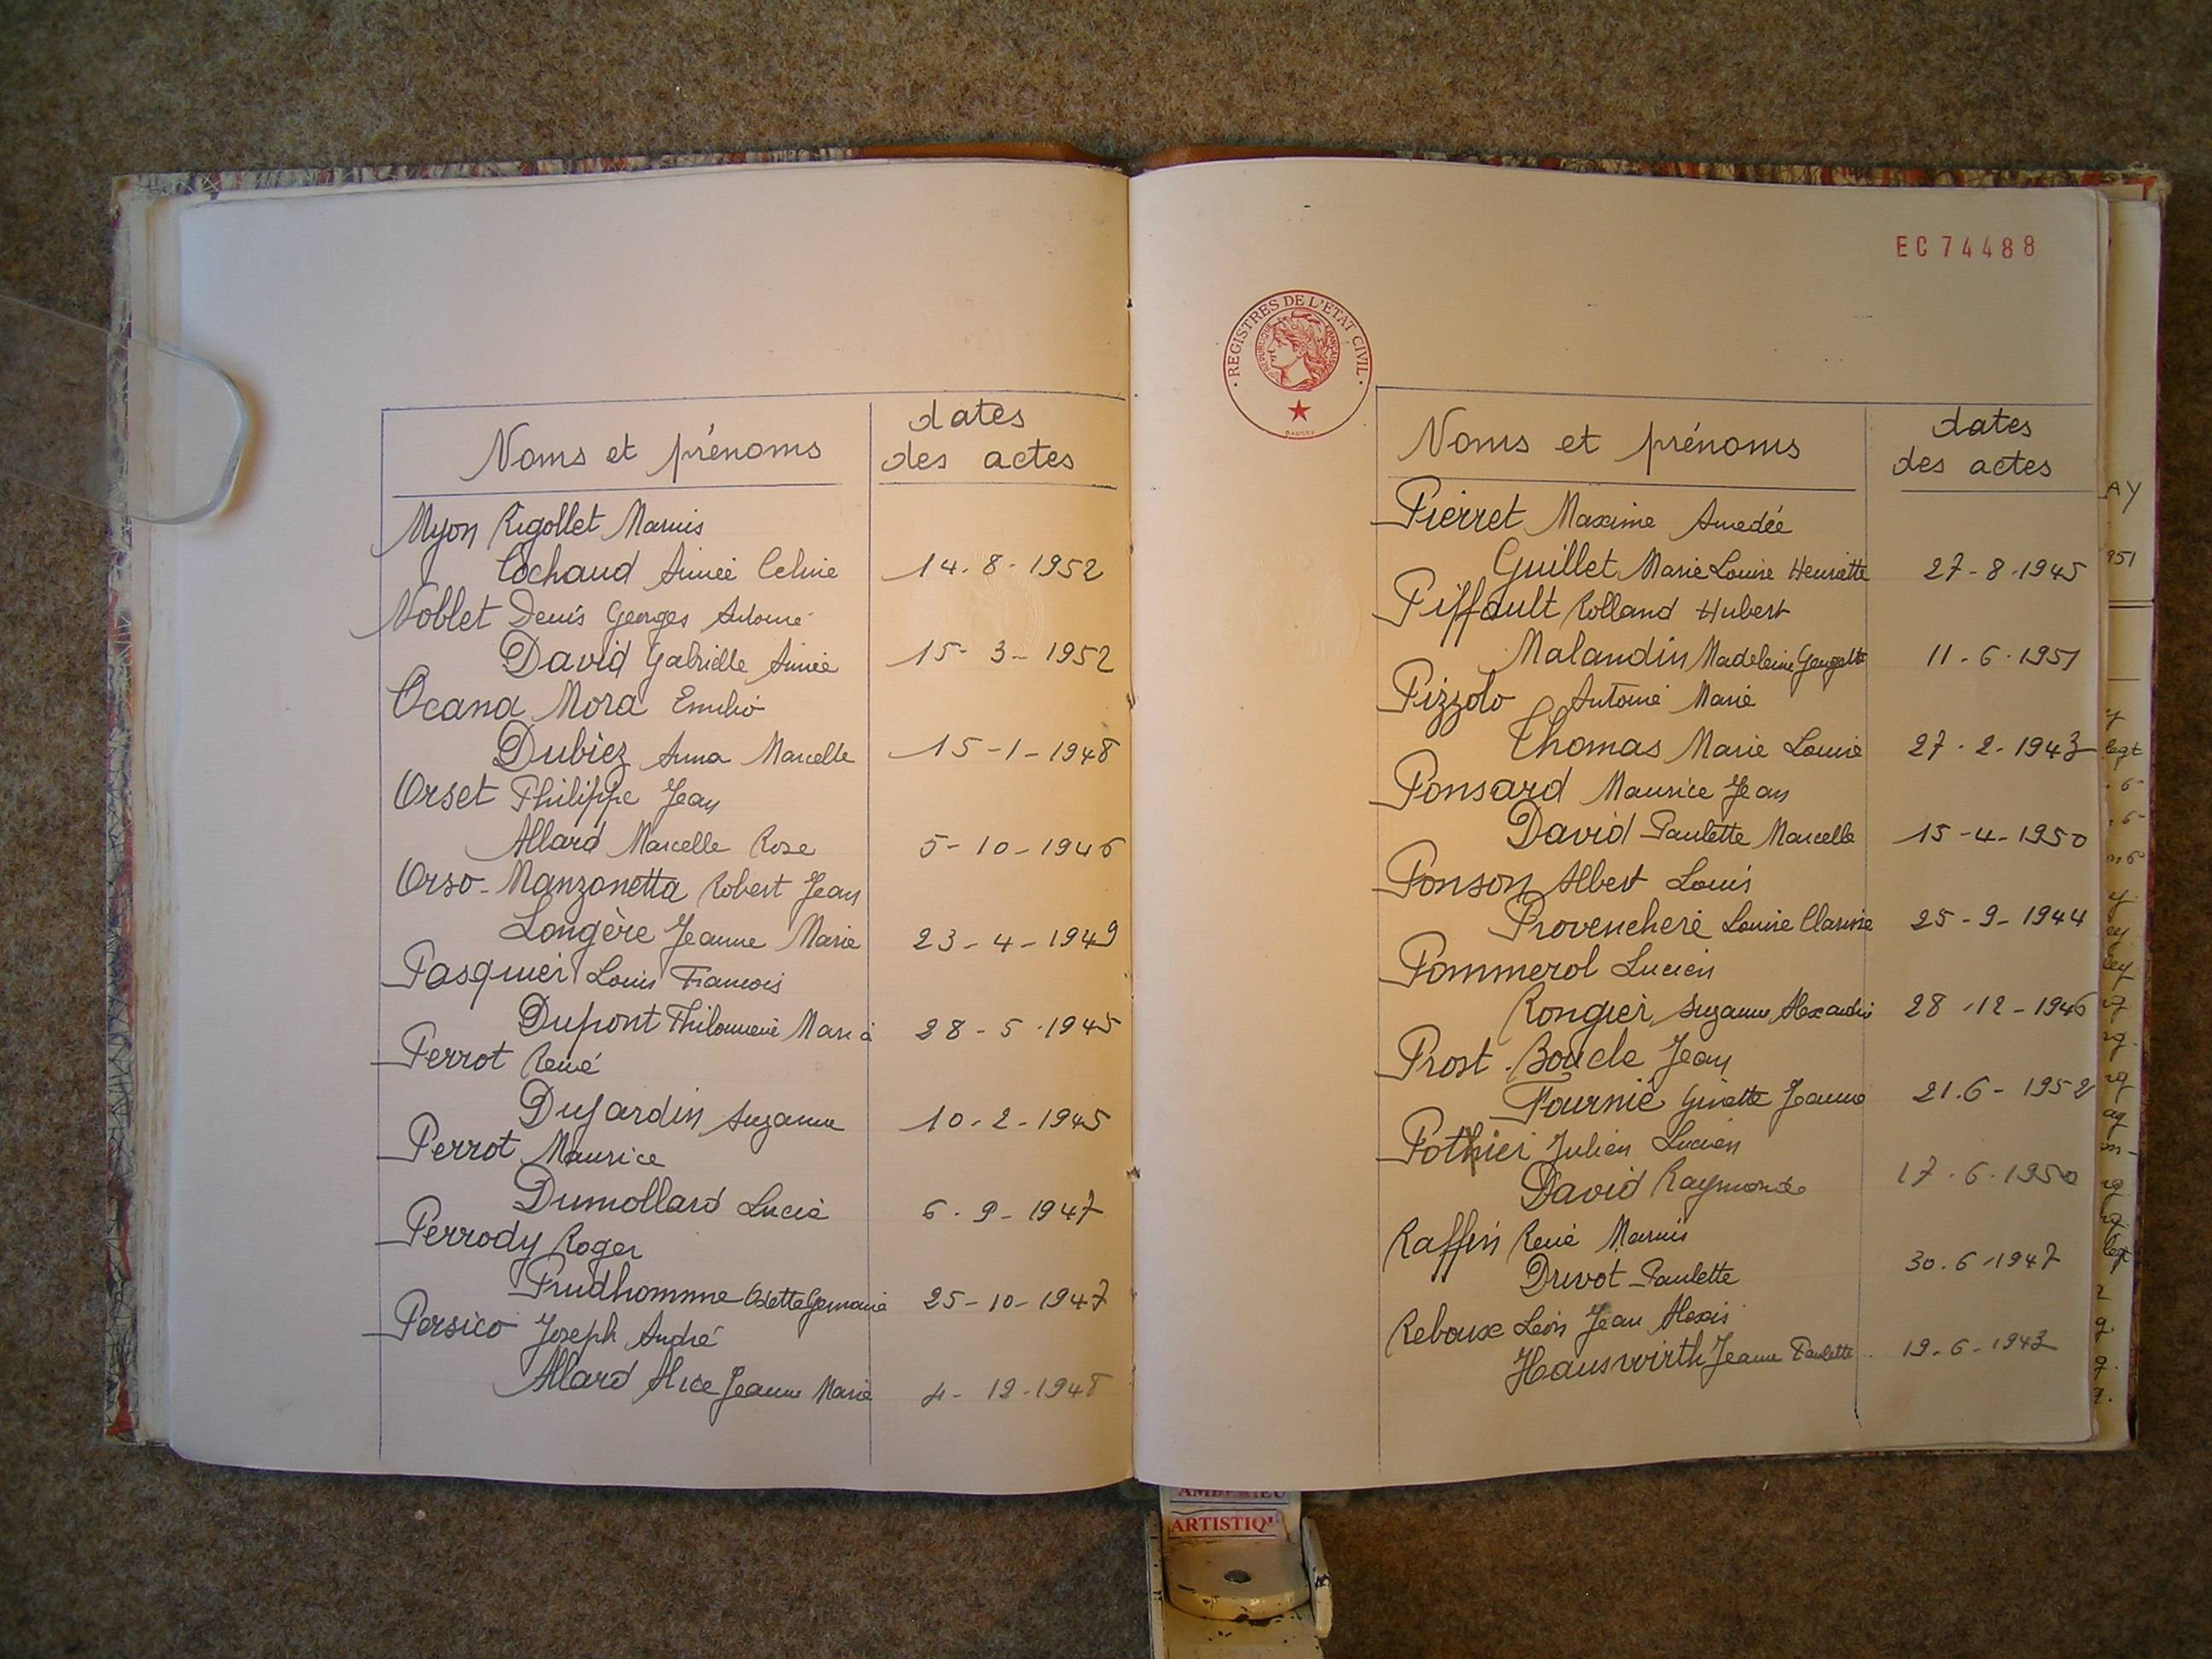 Noms et prénoms
dates
des actes
Myon Rigollet Marius
Cochaud Aimée Celine 14-8-1952
Noblet Denis Georges Antoine
David Gabrielle Aimée 15-3-1952
Ocana Mora Emilio
Dubiez Anna Marcelle 15-1-1948
Orset Philippe Jean
Allard Marcelle Rose 5-10-1946
Orso-Manzonetta Robert Jean
Longère Jeanne Marie 23-4-1949
Pasquier Louis François
Dupont Philomène Maria 28-5-1945
Perrot René
Dujardin Suzanne 10-2-1945
Perrot Maurice
Dumollard Lucie 6-9-1947
Perrody Roger
Prudhomme Odette Germaine 25-10-1947
Persico Joseph André
Allard Alice Jeanne Marie 4-12-1948
EC 74488
REGISTRES DE L'ETAT CIVIL
Noms et prénoms
dates
des actes
Pierret Maxime Amedée
Guillet Marie Louise Henriette 27-8-1945
Piffault Rolland Hubert
Malandin Madeleine 11-6-1951
Pizzolo Antoine Marie
Thomas Marie Louise 27-2-1943
Ponsard Maurice Jean
David Paulette Marcelle 15-4-1950
Ponson Albert Louis
Provenchere Louise 25-9-1944
Pommerol Lucien
Rongier Suzanne Alexandrine 28-12-1946
Prost-Boucle Jean
Fournié Ginette Jeanne 21.6-1952
Pothier Julien Lucien
David Raymonde 17.6.1950
Raffin René Marius
Drivot Paulette 30.6-1947
Reboux Léon Jean Alexis
Hauswirth Jeanne Paulette 19-6-1943
AMBERIEU
ARTISTIQ'